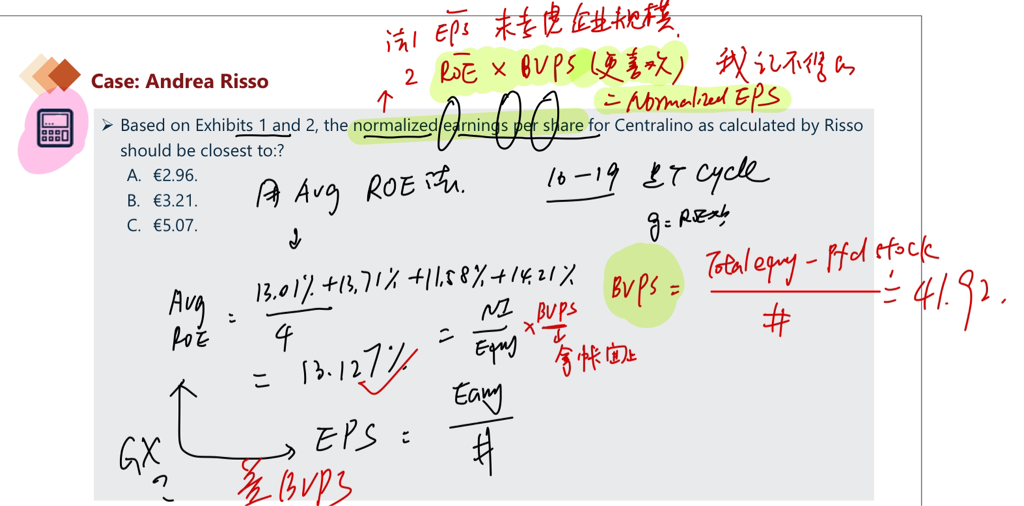 法1 EPS 未考虑企业规模.
2 ROE × BVPS (更喜欢) 我记不得了
= Normalized EPS
Case: Andrea Risso
➤ Based on Exhibits 1 and 2, the normalized earnings per share for Centralino as calculated by Risso
should be closest to:?
A. €2.96.
B. €3.21.
C. €5.07.
用 Avg ROE 法.
16-19 是个 cycle
g = ROE×b
BVPS = Total equity - Pfd stock / # = 41.92.
Avg ROE = 13.01% + 13.71% + 11.58% + 14.21% / 4
= 13.127%
= NI / Equity × BVPS
EPS = Earning / #
GX
?
差 BVPS